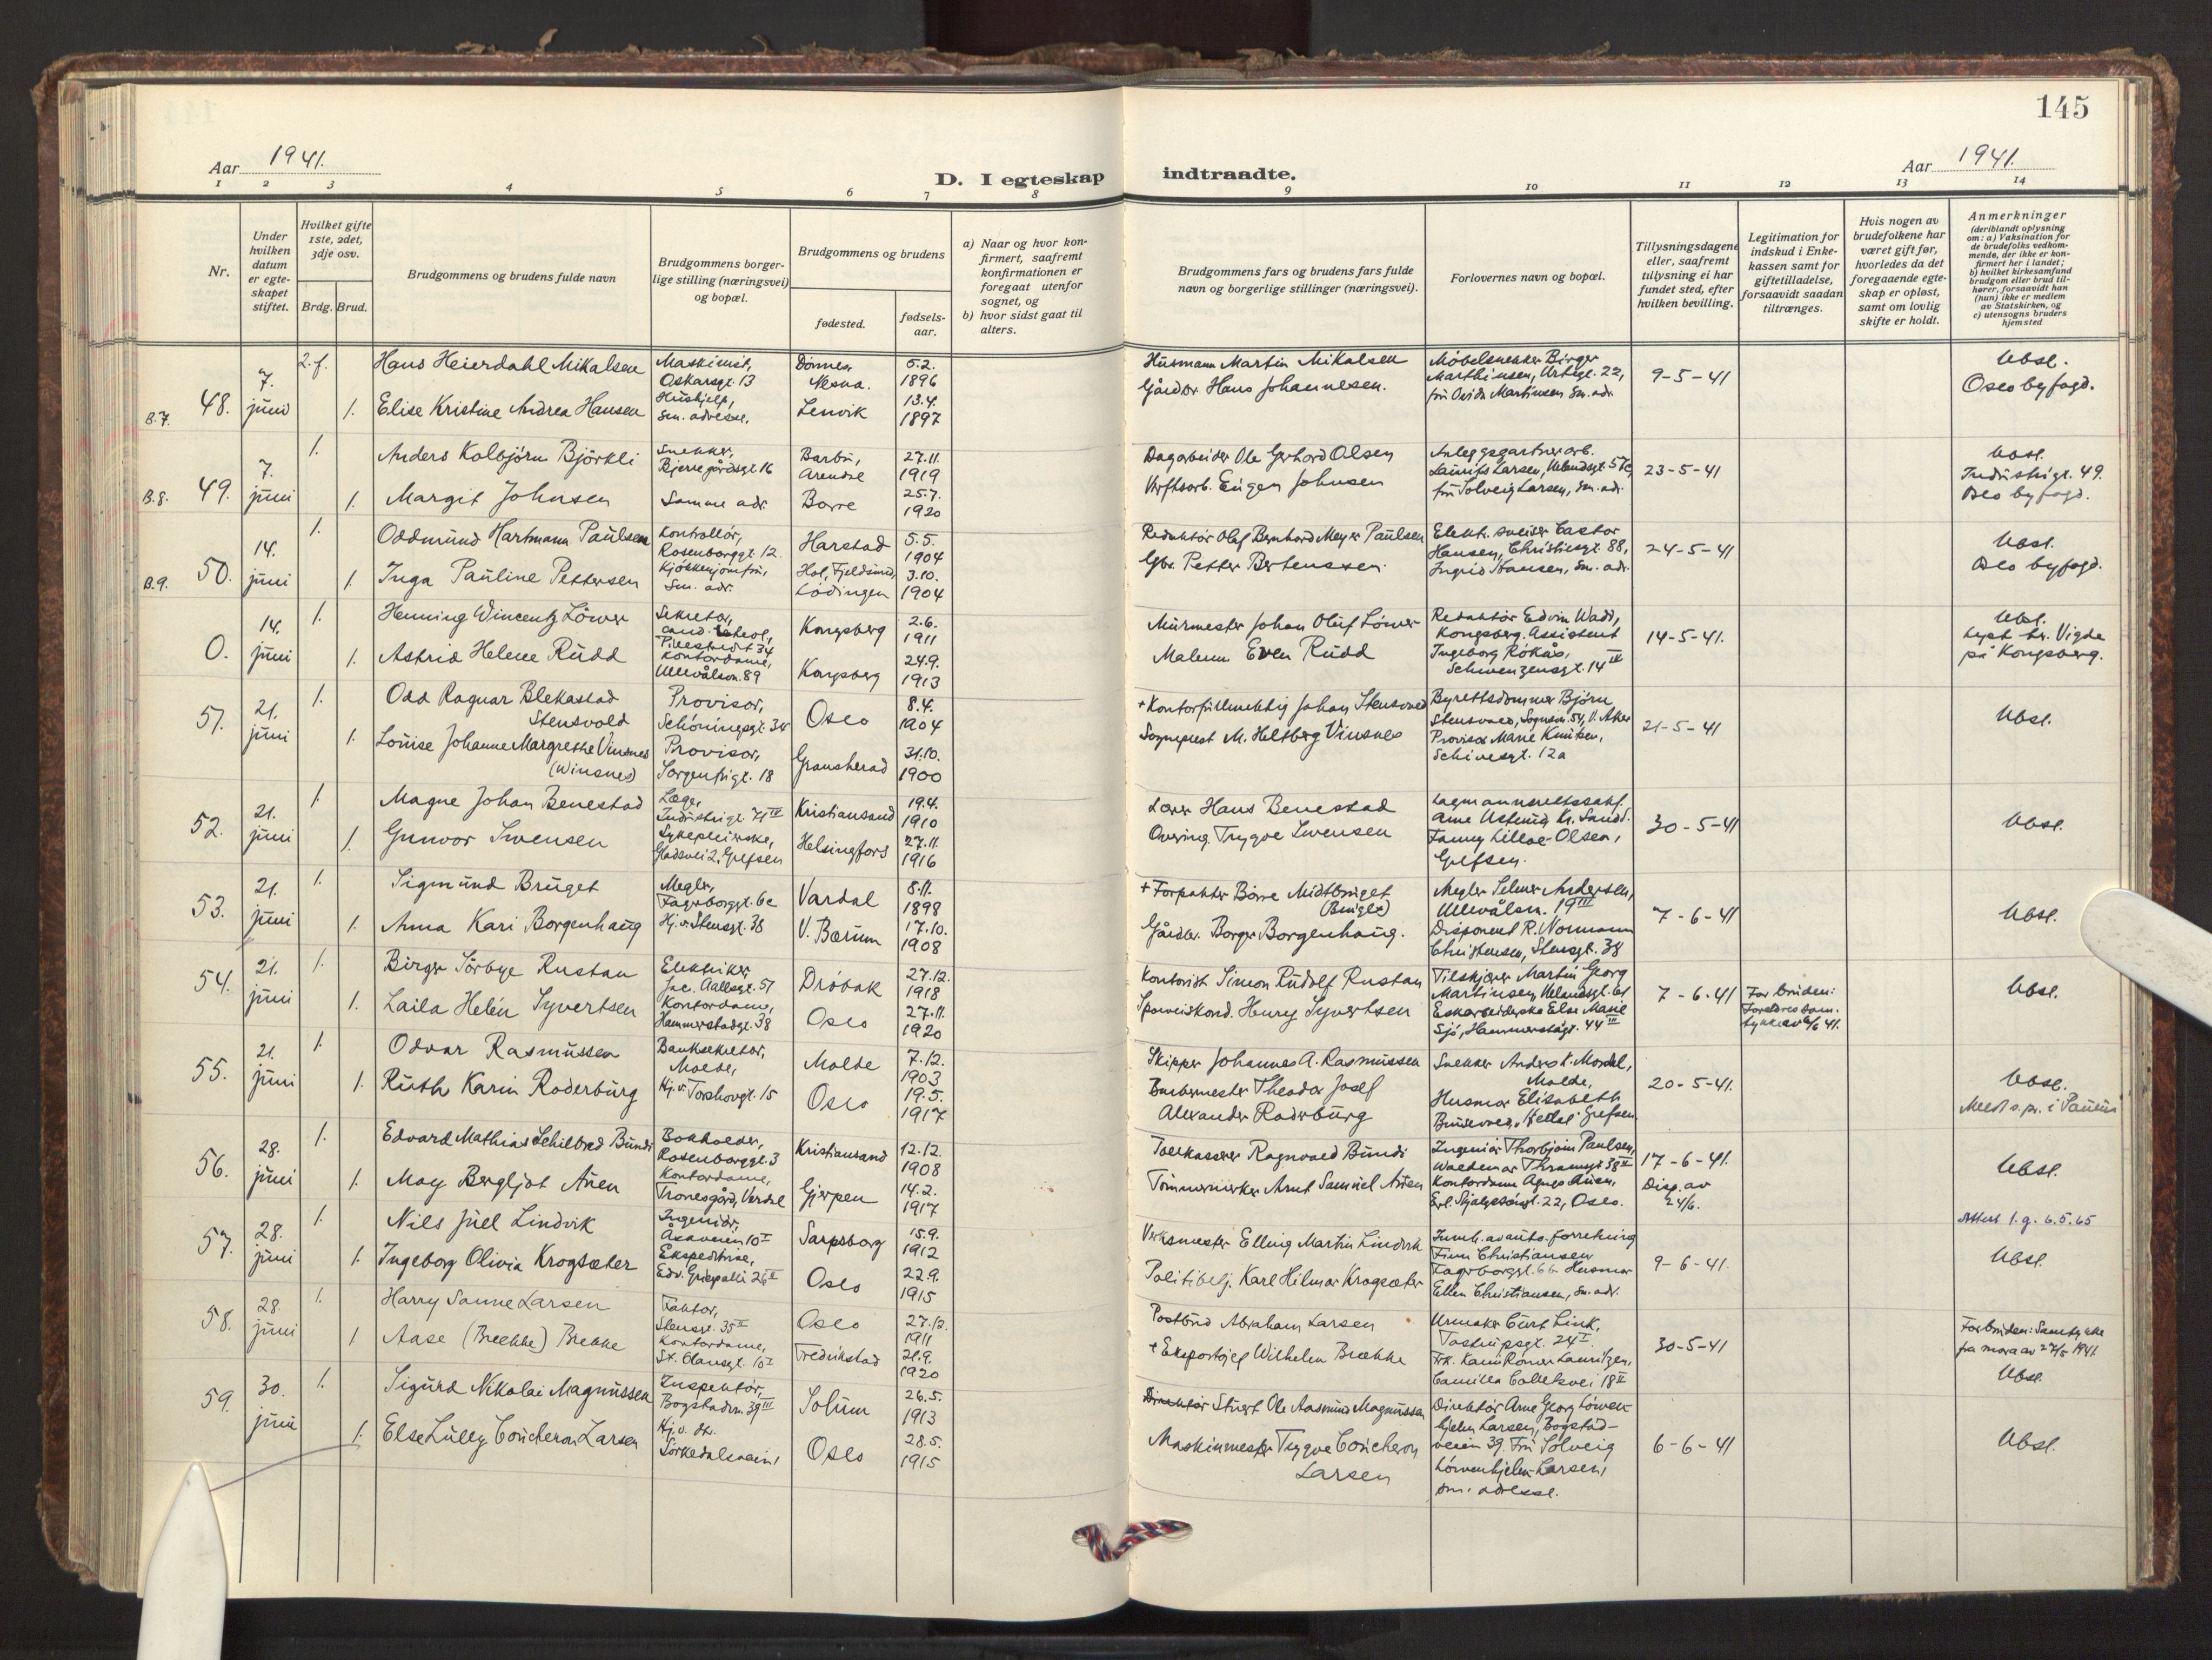 145
Aar 1941.
D. I egteskap indtraadte.
Aar 1941.
1 2 3 4 5 6 7 8 9 10 11 12 13 14
Nr.
Under hvilken datum er egteskapet stiftet.
Hvilket gifte 1ste, 2det, 3dje osv.
Brdg. Brud.
Brudgommens og brudens fulde navn
Brudgommens borgerlige stilling (næringsvei) og bopæl.
Brudgommens og brudens
fødested.
fødselsaar.
a) Naar og hvor konfirmert, saafremt konfirmationen er foregaat utenfor sognet, og
b) hvor sidst gaat til alters.
Brudgommens fars og brudens fars fulde navn og borgerlige stillinger (næringsvei).
Forlovernes navn og bopæl.
Tillysningsdagene eller, saafremt tillysning ei har fundet sted, efter hvilken bevilling.
Legitimation for indskud i Enkekassen samt for giftetilladelse, forsaavidt saadan tiltrænges.
Hvis nogen av brudefolkene har været gift før, hvorledes da det foregaaende egteskap er opløst, samt om lovlig skifte er holdt.
Anmerkninger (deriblandt oplysning om: a) Vaksination for de brudefolks vedkommende, der ikke er konfirmert her i landet; b) hvilket kirkesamfund brudgom eller brud tilhører, forsaavidt han (hun) ikke er medlem av Statskirken, og c) utensogns bruders hjemsted
B.7. 48. 7. juni 2. f. Hans Heierdahl Mikalsen Maskinist, Oskarsgt. 13 Dönnes, Nesna. 5.2. 1896 Husmann Martin Mikalsen Möbelsnekker Birger Marthinsen, Urtegt. 22, 9-5-41 Ubsl.
1. Elise Kristine Andrea Hansen Hushjelp, sm. adresse. Lenvik 13.4. 1897 Gårdbr. Hans Johannesen. fru Ovida Martinsen sm. adr. Oslo byfogd.
B.8. 49. 7. juni 1. Anders Kolbjörn Björkli Snekker, Bjerregårdsgt. 16 Barbu, Arendal 27.11. 1919 Dagarbeider Ole Gerhard Olsen Anleggsgartnerarb. Laurits Larsen, Uelandsgt. 57c, 23-5-41 Ubsl. Industrigt. 49.
1. Margit Johnsen Samme adr. Borre 25.7. 1920 Verftsarb. Eugen Johnsen fru Solveig Larsen, sm. adr. Oslo byfogd.
B.9. 50. 14. juni 1. Oddmund Hartmann Paulsen Kontrollör, Rosenborggt. 12. Harstad 5.5. 1904 Redaktör Olaf Bernhard Meyer Paulsen Elektr. sveiser Castor Hansen, Christiesgt. 88, 24-5-41 Ubsl.
1. Inga Pauline Pettersen Kjökkenjomfru, Sm. adr. Hol, Fjeldsund, Lödingen 3.10. 1904 Gbr. Petter Bertenssen. Ingrid Hansen, sm. adr. Oslo byfogd.
0. 14. juni 1. Henning Wincentz Löwer Sekretær, cand. theol., Pilestredt 34 Kongsberg 2.6. 1911 Murmester Johan Oluf Löwer Redaktör Edvin Wadd, Kongsberg. Assistent 14-5-41. Ubsl. Lyst br. Vigde
1. Astrid Helene Rudd Kontordame, Ullevålsvn. 89 Kongsberg 24.9. 1913 Malerm. Even Rudd Ingeborg Rökås, Schwenzensgt. 14 IV på Kongsberg.
51. 21. juni 1. Odd Ragnar Blekastad Stensvold Provisor, Schöningsgt. 34 Oslo 8.4. 1904 + Kontorfullmektig Johan Stensvold Byrettsdommer Björn Stensvold, Sognsvn. 54, V. Aker 21-5-41 Ubsl.
1. Louise Johanne Margrethe Vinsnes (Winsnes) Provisor, Sorgenfrigt. 18 Gransherad 31.10. 1900 Sogneprest M. Heltberg Vinsnes Provisor Marie Knutsen, Schivesgt. 12a
52. 21. juni 1. Magne Johan Benestad Læge, Industrigt. 71 IV Kristiansand 19.4. 1910 Lærer Hans Benestad Lagmannsrettssakf. Arne Kr. Sand. 30-5-41 Ubsl.
1. Gunvor Svensen Sykepleierske, Gladsvei 2, Grefsen Helsingfors 27.11. 1916 Overing. Trygve Svensen Fanny Lilloe-Olsen, Grefsen.
53. 21. juni 1. Sigmund Bruget Megler, Fagerborggt. 6c Vardal 8.11. 1898 + Forpakter Börre Midtbruget Megler Selmer Andersen, Ullevålsvn. 19 III 7-6-41 Ubsl.
1. Anna Kari Borgenhaug Hj. v. Stensgt. 38 V. Bærum 17.10. 1908 Gårdbr. Borger Borgenhaug. Disponent R. Normann Christensen, Stensgt. 38
54. 21. juni 1. Birger Sörbye Rustan Elektriker, Jac. Aallsgt. 57 Dröbak 27.12. 1918 Kontorist Simon Rudolf Rustan Tilskjærer Martin Georg Martinsen, Uelandsgt. 61 7-6-41 For bruden: Foreldres samtykke av 6/6 41. Ubsl.
1. Laila Helén Syvertsen Kontordame, Hammerstadgt. 38 Oslo 27.11. 1920 Sporveiskond. Henry Syvertsen Eskearbeiderske Else Marie Sjö, Hammerstadgt. 44 III
55. 21. juni 1. Odvar Rasmussen Banksekretær, Molde, Molde 7.12. 1903 Skipper Johannes A. Rasmussen Snekker Anders K. Mordal, Molde, 20-5-41. Ubsl.
1. Ruth Karin Roderburg Hj. v. Torshovgt. 15 Oslo 19.5. 1917 Barbermester Theodor Josef Alexander Roderburg Husmor Elisabeth Grefsen Meldt s.pr. i Paulus
56. 28. juni 1. Edvard Mathias Schilbred Bundi Bokholder, Rosenborggt. 3 Kristiansand 12.12. 1908 Tollkasserer Ragnvald Bundi Ingeniör Thorbjörn Paulsen, Waldemar Thranesgt. 38 II 17-6-41. Ubsl.
1. May Bergljot Åuen Kontordame, Tronesgård, Verdal Gjerpen 14.2. 1917 Tömmermerker Arnt Samuel Åuen Kontordame Agnes Åuen, Erl. Skjalgssönsgt. 22, Oslo. Disp. av 24/6.
Attest 1.g. 6.5.65
57. 28. juni 1. Nils Juel Lindvik Ingeniör, Åsaveien 10 I Sarpsborg 15.9. 1912 Verksmester Elling Martin Lindvik Innh. av auto-forretning Finn Christiansen 9-6-41. Ubsl.
1. Ingeborg Olivia Krogsæter Ekspeditrise, Edv. Griegsallé 26 II Oslo 22.9. 1915 Politibetj. Karl Hilmar Krogsæter Fagerborggt. 6b Husmor Ellen Christiansen, sm. adr.
58. 28. juni 1. Harry Sanne Larsen Faktor, Stensgt. 35 II Oslo 27.12. 1911 Postbud Abraham Larsen Urmaker Curt Link, Tostrupsgt. 24 I 30-5-41 For bruden: Samtykke fra mora av 27/5 1941.
1 Aase (Brekke) Brekke Kontordame, St. Olavsgt. 10 I Fredrikstad 21.9. 1920 + Eksportsjef Wilhelm Brekke Frk. Karin Römer Lauritzen, Camilla Colletsvei 18 II Ubsl.
59. 30. juni 1. Sigurd Nikolai Magnussen Inspektör, Bogstadvn. 39 III Solum 26.5. 1913 Direktör Stuert Ole Aasmund Magnussen Direktör Arne Georg Löwenhjelm Larsen, Bogstad- 6-6-41 Ubsl.
1. Else Lully Coucheron Larsen Hj. v. Str. Sörkedalsveien 1 Oslo 28.5. 1915 Maskinmester Trygve Coucheron Larsen veien 39. Fru Solveig Löwenhjelm-Larsen, sm. adresse.